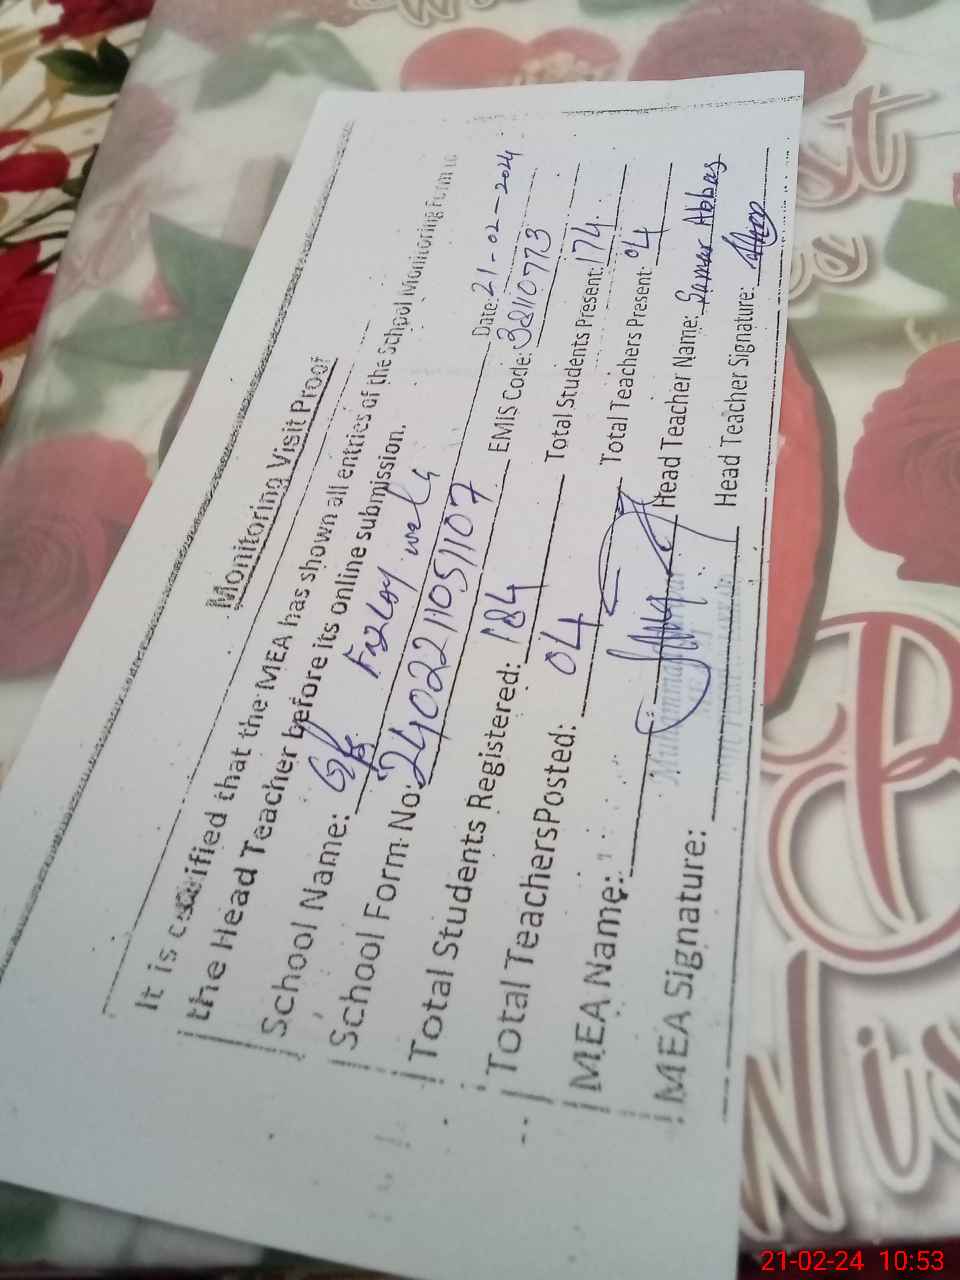 Monitoring Visit Proof
It is certified that the MEA has shown all entries of the School Monitoring Form to
the Head Teacher before its online submission.
School Name: Date: 21-02-2024
School Form No: 24022110511107 EMIS Code: 38110773
Total Students Registered: 184 Total Students Present: 174
Total TeachersPosted: 04 Total Teachers Present: 04
MEA Name: Head Teacher Name: Samar Abbas
MEA Signature: Head Teacher Signature:
st
Wis
21-02-24 10:53